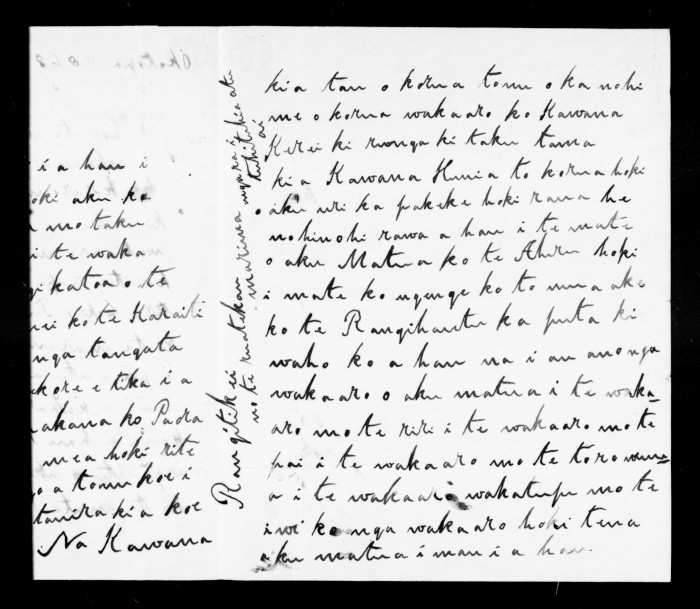 i a hau i
oki aku ko
mo taku
i te waka
gi katoa o te
nei ko te Karaiti
nga tangata
kore e tika i a
akana ko Paora
mea hoki rite
a tomu koe i
tauira ki a koe
Na Kawana
Rangitikei
no te ruatekau marima ngara i tuhituhia atu
ai
kia tau o korua tomu o kanohi
me o korua wakaaro ko Kawana
Kerei ki runga ki taku tama
ki a Kawana Hunia to korua hoki
aku uri ka pakeke hoki raua he
nohinohi rawa a hau i te mate
o aku Matua ko te Ahuru hoki
i mate ko ngenge ko to mua ake
ko te Rangihautu ka puta ki
waho ko a hau na i au anonga
wakaaro o aku matua i te waka-
aro mo te riri i te wakaaro mo te
pai i te wakaaro mo te toro wenu-
a i te wakaaro wakatupu mo te
iwi ko nga wakaaro hoki tena
aku matua i mau i a hau.